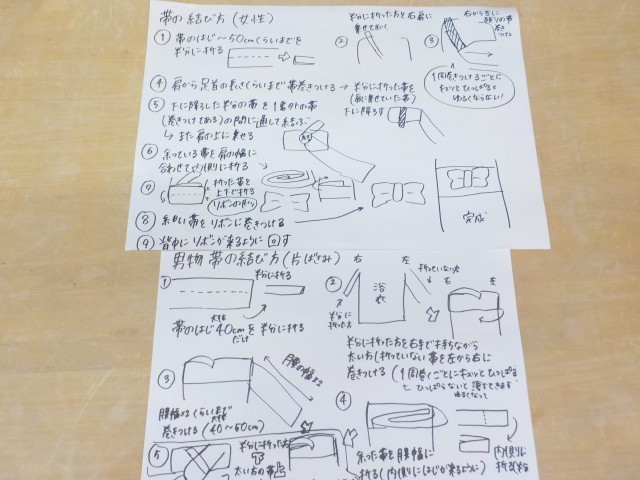 帯の結び方(女性)
① 帯のはじ〜50cmくらいまでを
半分に折る
② 半分に折った方を右肩に
乗せておく
③ 右から左に
残りの帯
巻き
つける
1周巻きつけるごとに
キュッとひっぱると
ゆるくならない!
④ 肩から足首の長さくらいまで帯巻きつける → 半分に折った帯を
(肩に乗せていた帯)
下に降ろす
⑤ 下に降ろした半分の帯を1番外の帯
(巻きつけてある)の間に通して結ぶ。
↳ また肩の上に乗せる
⑥ 余っている帯を肩の幅に
合わせて内側に折る
⑦ 折った帯を
上下で折る
(リボンの形)
⑧ 細い帯をリボンに巻きつける
⑨ 背中にリボンが来るように回す
完成
男物 帯の結び方(片ばさみ)
① 半分に折る
大体
帯のはじ40cmを半分に折る
だけ
② 右 左
浴衣
半分に
折った方
折っていない方
右 左
半分に折った方を右手で持ちながら
太い方(折っていない帯を左から右に
巻きつける(1周巻くごとにキュッとひっぱる
ひっぱらないと
ゆるくなって
③ 腰の幅×2
腰幅×2くらいまで
大体
巻きつける(40〜50cm)
④ 余った帯を腰幅に
折る(内側にはじが来るように)
内側に
折る
⑤ 半分に折った方
太い方の帯